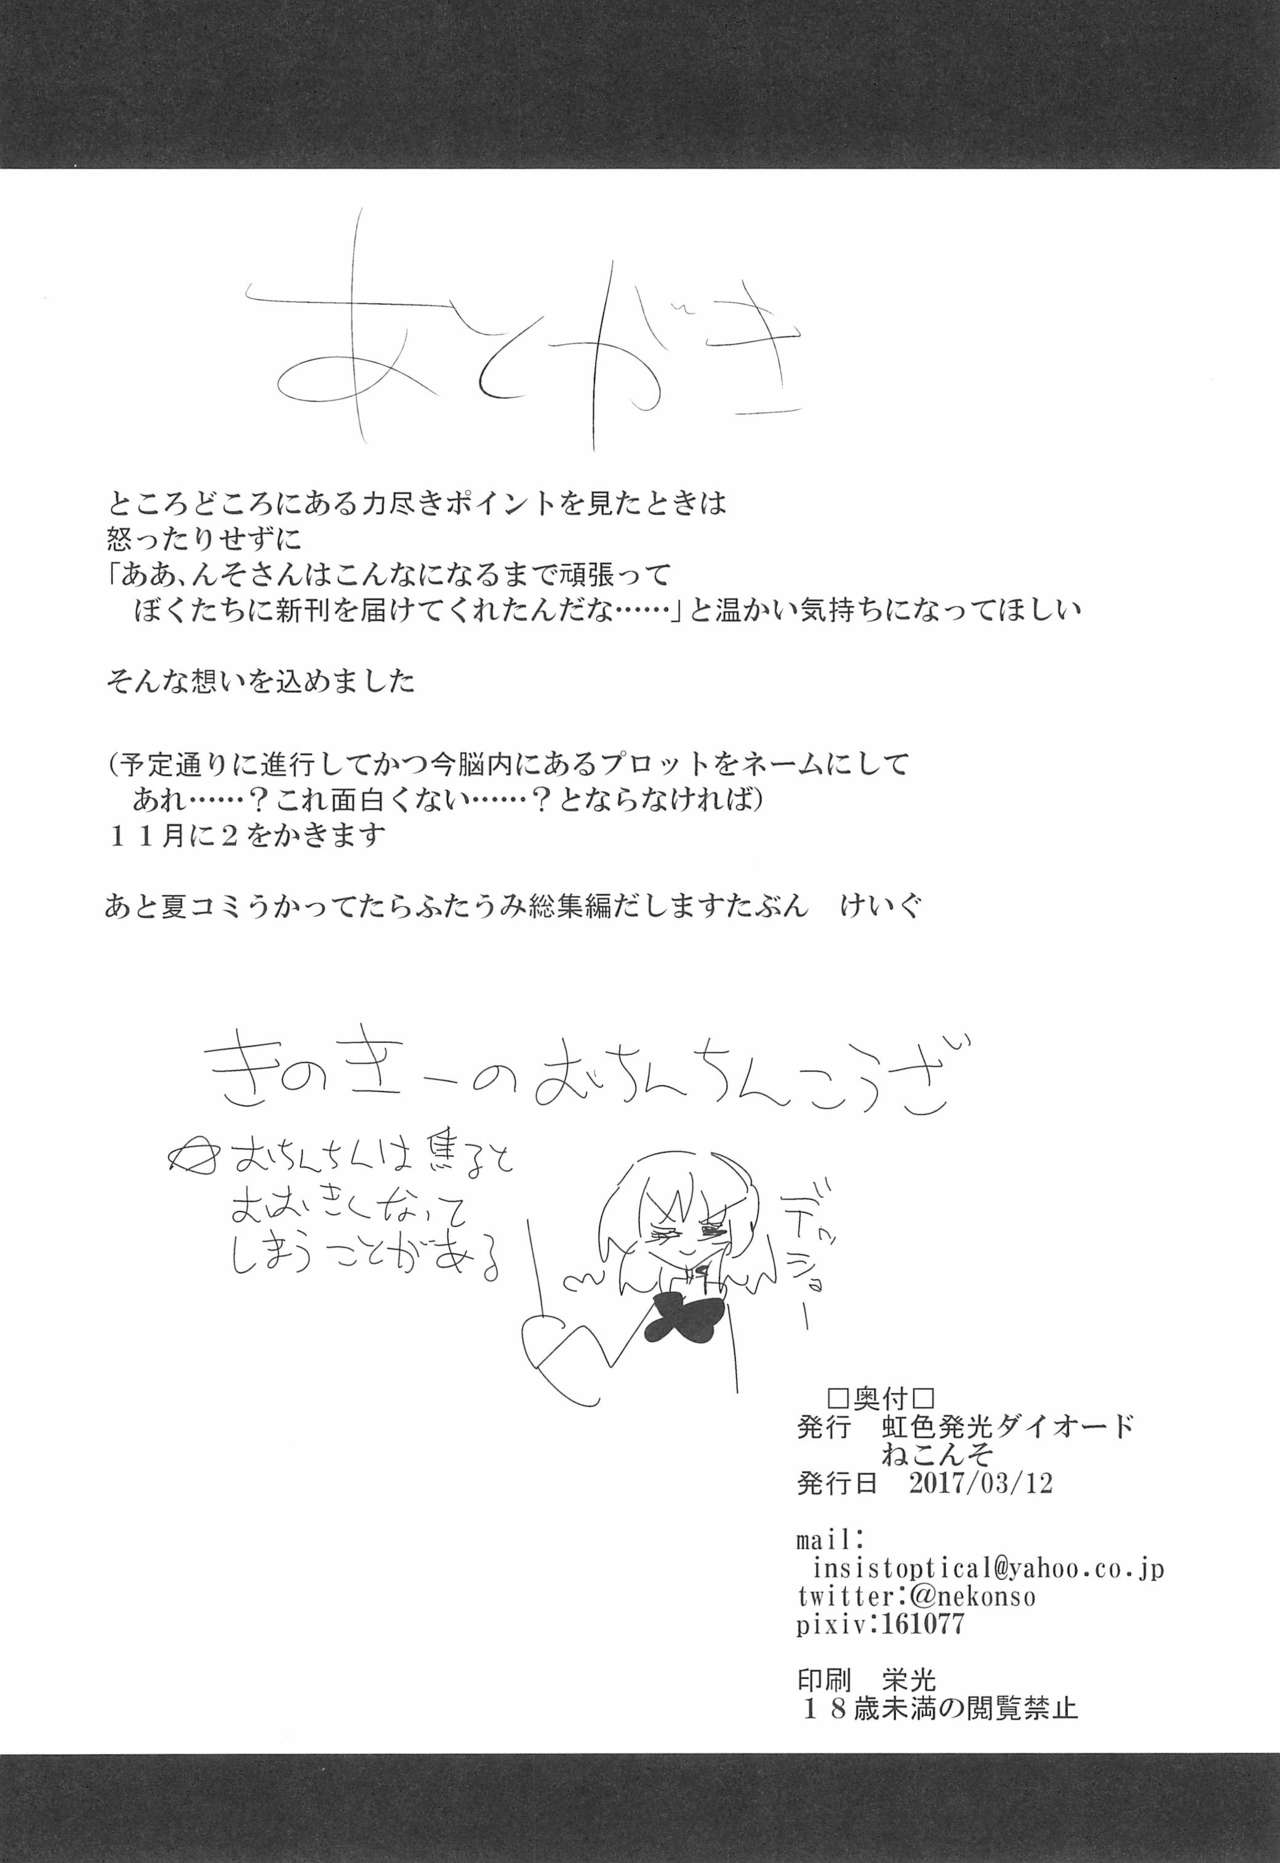 あとがき
ところどころにある力尽きポイントを見たときは
怒ったりせずに
「ああ、んそさんはこんなになるまで頑張って
ぼくたちに新刊を届けてくれたんだな……」と温かい気持ちになってほしい
そんな想いを込めました
(予定通りに進行してかつ今脳内にあるプロットをネームにして
あれ……?これ面白くない……?とならなければ)
11月に2をかきます
あと夏コミうかってたらふたうみ総集編だしますたぶん　けいぐ
きのきーのおちんちんこうざ
☆おちんちんは焦ると
おおきくなって
しまうことがある
デッショー
□奥付□
発行　虹色発光ダイオード
ねこんそ
発行日　2017/03/12
mail:
insistoptical@yahoo.co.jp
twitter:@nekonso
pixiv:161077
印刷　栄光
18歳未満の閲覧禁止